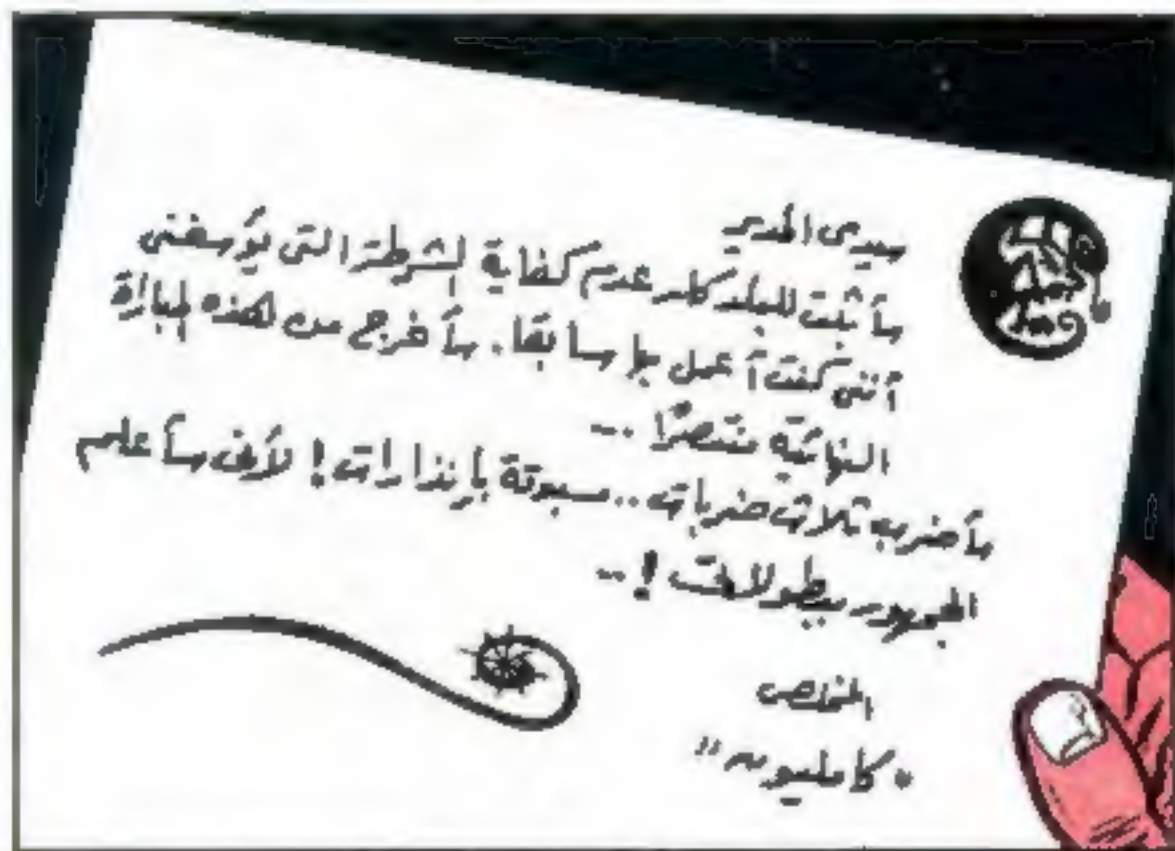 سيدى المدير
سأثبت للبلد كله عدم كفاية الشرطة التى يؤسفنى
أننى كنت أعمل بها سابقا. سأخرج من هذه المباراة
النهائية منتصرًا ...
سأضرب ثلاث ضربات .. مسبوقة بإنذارات! لأننى سأعلم
الجمهور ببطولاتى! ..
المخلص
"كامليون"